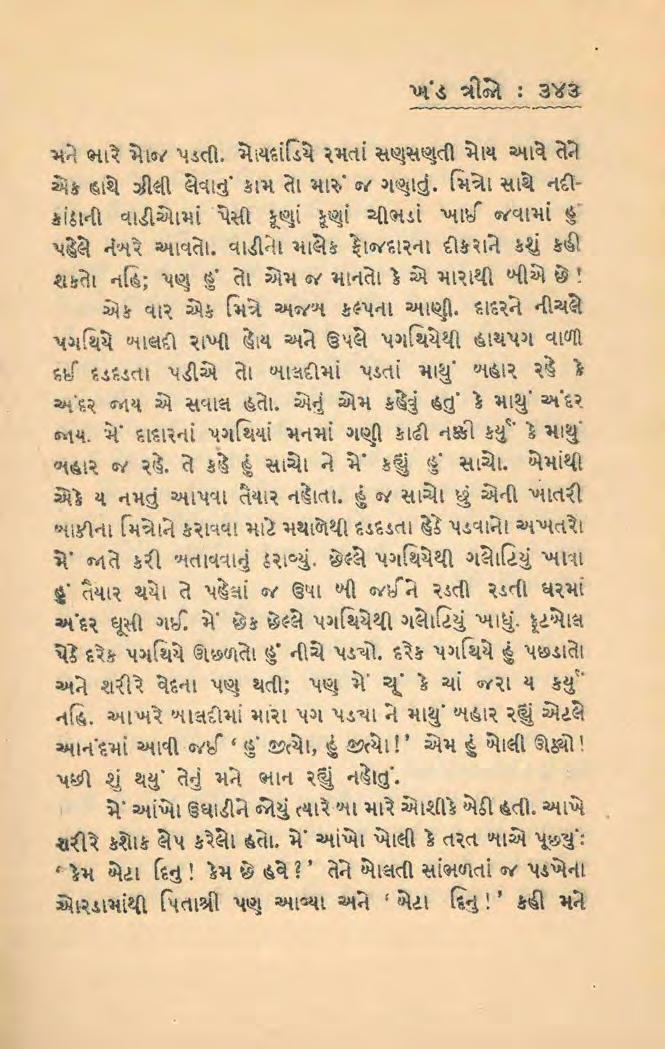 ખંડ ત્રીજો : ૩૪૩
મને ભારે મોજ પડતી. મોયદાંડિયે રમતાં સણસણતી મોય આવે તેને
એક હાથે ઝીલી લેવાનું કામ તો મારું જ ગણાતું. મિત્રો સાથે નદી-
કાંઠાની વાડીઓમાં પેસી કૂણાં કૂણાં ચીભડાં ખાઈ જવામાં હું
પહેલે નંબરે આવતો. વાડીનો માલેક ફોજદારના દીકરાને કશું કહી
શકતો નહિ; પણ હું તો એમ જ માનતો કે એ મારાથી બીએ છે !
એક વાર એક મિત્રે અજબ કલ્પના આણી. દાદરને નીચલે
પગથિયે બાલદી રાખી હોય અને ઉપલે પગથિયેથી હાથપગ વાળી
દઈ દડદડતા પડીએ તો બાલદીમાં પડતાં માથું બહાર રહે કે
અંદર જાય એ સવાલ હતો. એનું એમ કહેવું હતું કે માથું અંદર
જાય. મેં દાદારનાં પગથિયાં મનમાં ગણી કાઢી નક્કી કર્યું કે માથું
બહાર જ રહે. તે કહે હું સાચો ને મેં કહ્યું હું સાચો. બેમાંથી
એકે ય નમતું આપવા તૈયાર નહોતા. હું જ સાચો છું એની ખાતરી
બાકીના મિત્રોને કરાવવા માટે મથાળેથી દડદડતા હેઠે પડવાનો અખતરો
મેં જાતે કરી બતાવવાનું ઠરાવ્યું. છેલ્લે પગથિયેથી ગલોટિયું ખાવા
હું તૈયાર થયો તે પહેલાં જ ઉષા બી જઈને રડતી રડતી ઘરમાં
અંદર ઘૂસી ગઈ. મેં છેક છેલ્લે પગથિયેથી ગલોટિયું ખાધું. ફૂટબોલ
પેઠે દરેક પગથિયે ઊછળતો હું નીચે પડ્યો. દરેક પગથિયે હું પછડાતો
અને શરીરે વેદના પણ થતી; પણ મેં ચૂં કે ચાં જરા ય કર્યું
નહિ. આખરે બાલદીમાં મારા પગ પડ્યા ને માથું બહાર રહ્યું એટલે
આનંદમાં આવી જઈ ‘ હું જીત્યો, હું જીત્યો! ’ એમ હું બોલી ઊઠ્યો !
પછી શું થયું તેનું મને ભાન રહ્યું નહોતું.
મેં આંખો ઉઘાડીને જોયું ત્યારે બા મારે ઓશીકે બેઠી હતી. આખે
શરીરે કશોક લેપ કરેલો હતો. મેં આંખો ખોલી કે તરત બાએ પૂછ્યું:
‘ કેમ બેટા દિનુ ! કેમ છે હવે ? ’ તેને બોલતી સાંભળતાં જ પડખેના
ઓરડામાંથી પિતાશ્રી પણ આવ્યા અને ‘ બેટા દિનુ ! ’ કહી મને